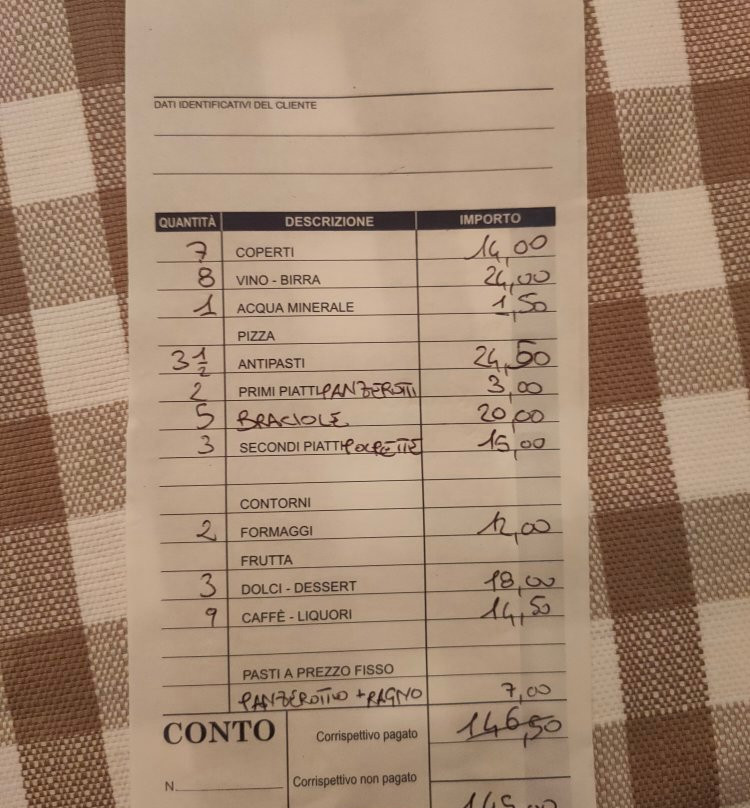 DATI IDENTIFICATIVI DEL CLIENTE
QUANTITÀ DESCRIZIONE IMPORTO
7 COPERTI 14,00
8 VINO - BIRRA 24,00
1 ACQUA MINERALE 1,50
PIZZA
3 1/2 ANTIPASTI 24,50
2 PRIMI PIATTI PANZEROTTI 3,00
5 BRACIOLE 20,00
3 SECONDI PIATTI POLPETTE 15,00
CONTORNI
2 FORMAGGI 12,00
FRUTTA
3 DOLCI - DESSERT 18,00
9 CAFFÈ - LIQUORI 14,50
PASTI A PREZZO FISSO
+ RAGNO 7,00
CONTO Corrispettivo pagato 146,50
N. Corrispettivo non pagato